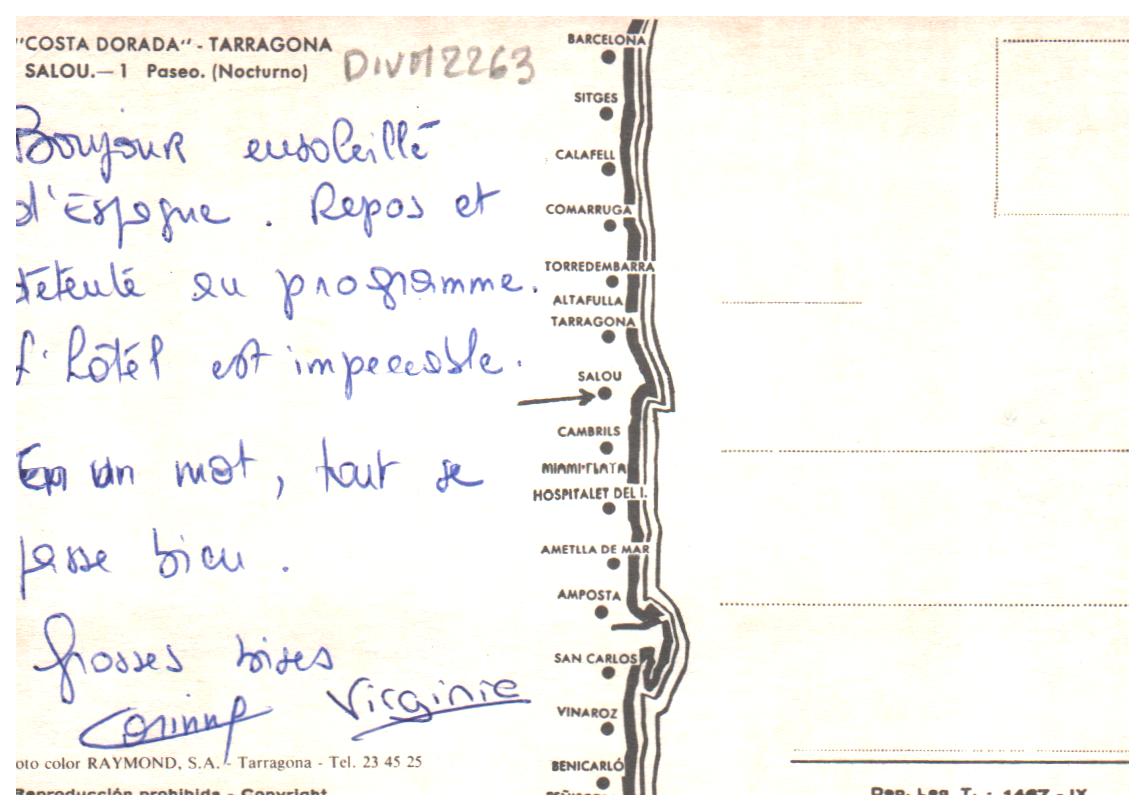 "COSTA DORADA" - TARRAGONA
SALOU.— 1 Paseo. (Nocturno)
DIVM2263
Bonjour ensoleillé
d'Espagne. Repos et
détente au programme.
L'hôtel est impeccable.
En un mot, tout se
passe bien.
Grosses bises
Corinne Virginie
oto color RAYMOND, S.A. - Tarragona - Tel. 23 45 25
Reproducción prohibida - Copyright
BARCELONA
SITGES
CALAFELL
COMARRUGA
TORREDEMBARRA
ALTAFULLA
TARRAGONA
SALOU
CAMBRILS
MIAMI-PLAYA
HOSPITALET DEL I.
AMETLLA DE MAR
AMPOSTA
SAN CARLOS
VINAROZ
BENICARLÓ
Dep. Leg. T. : 1467 - IX